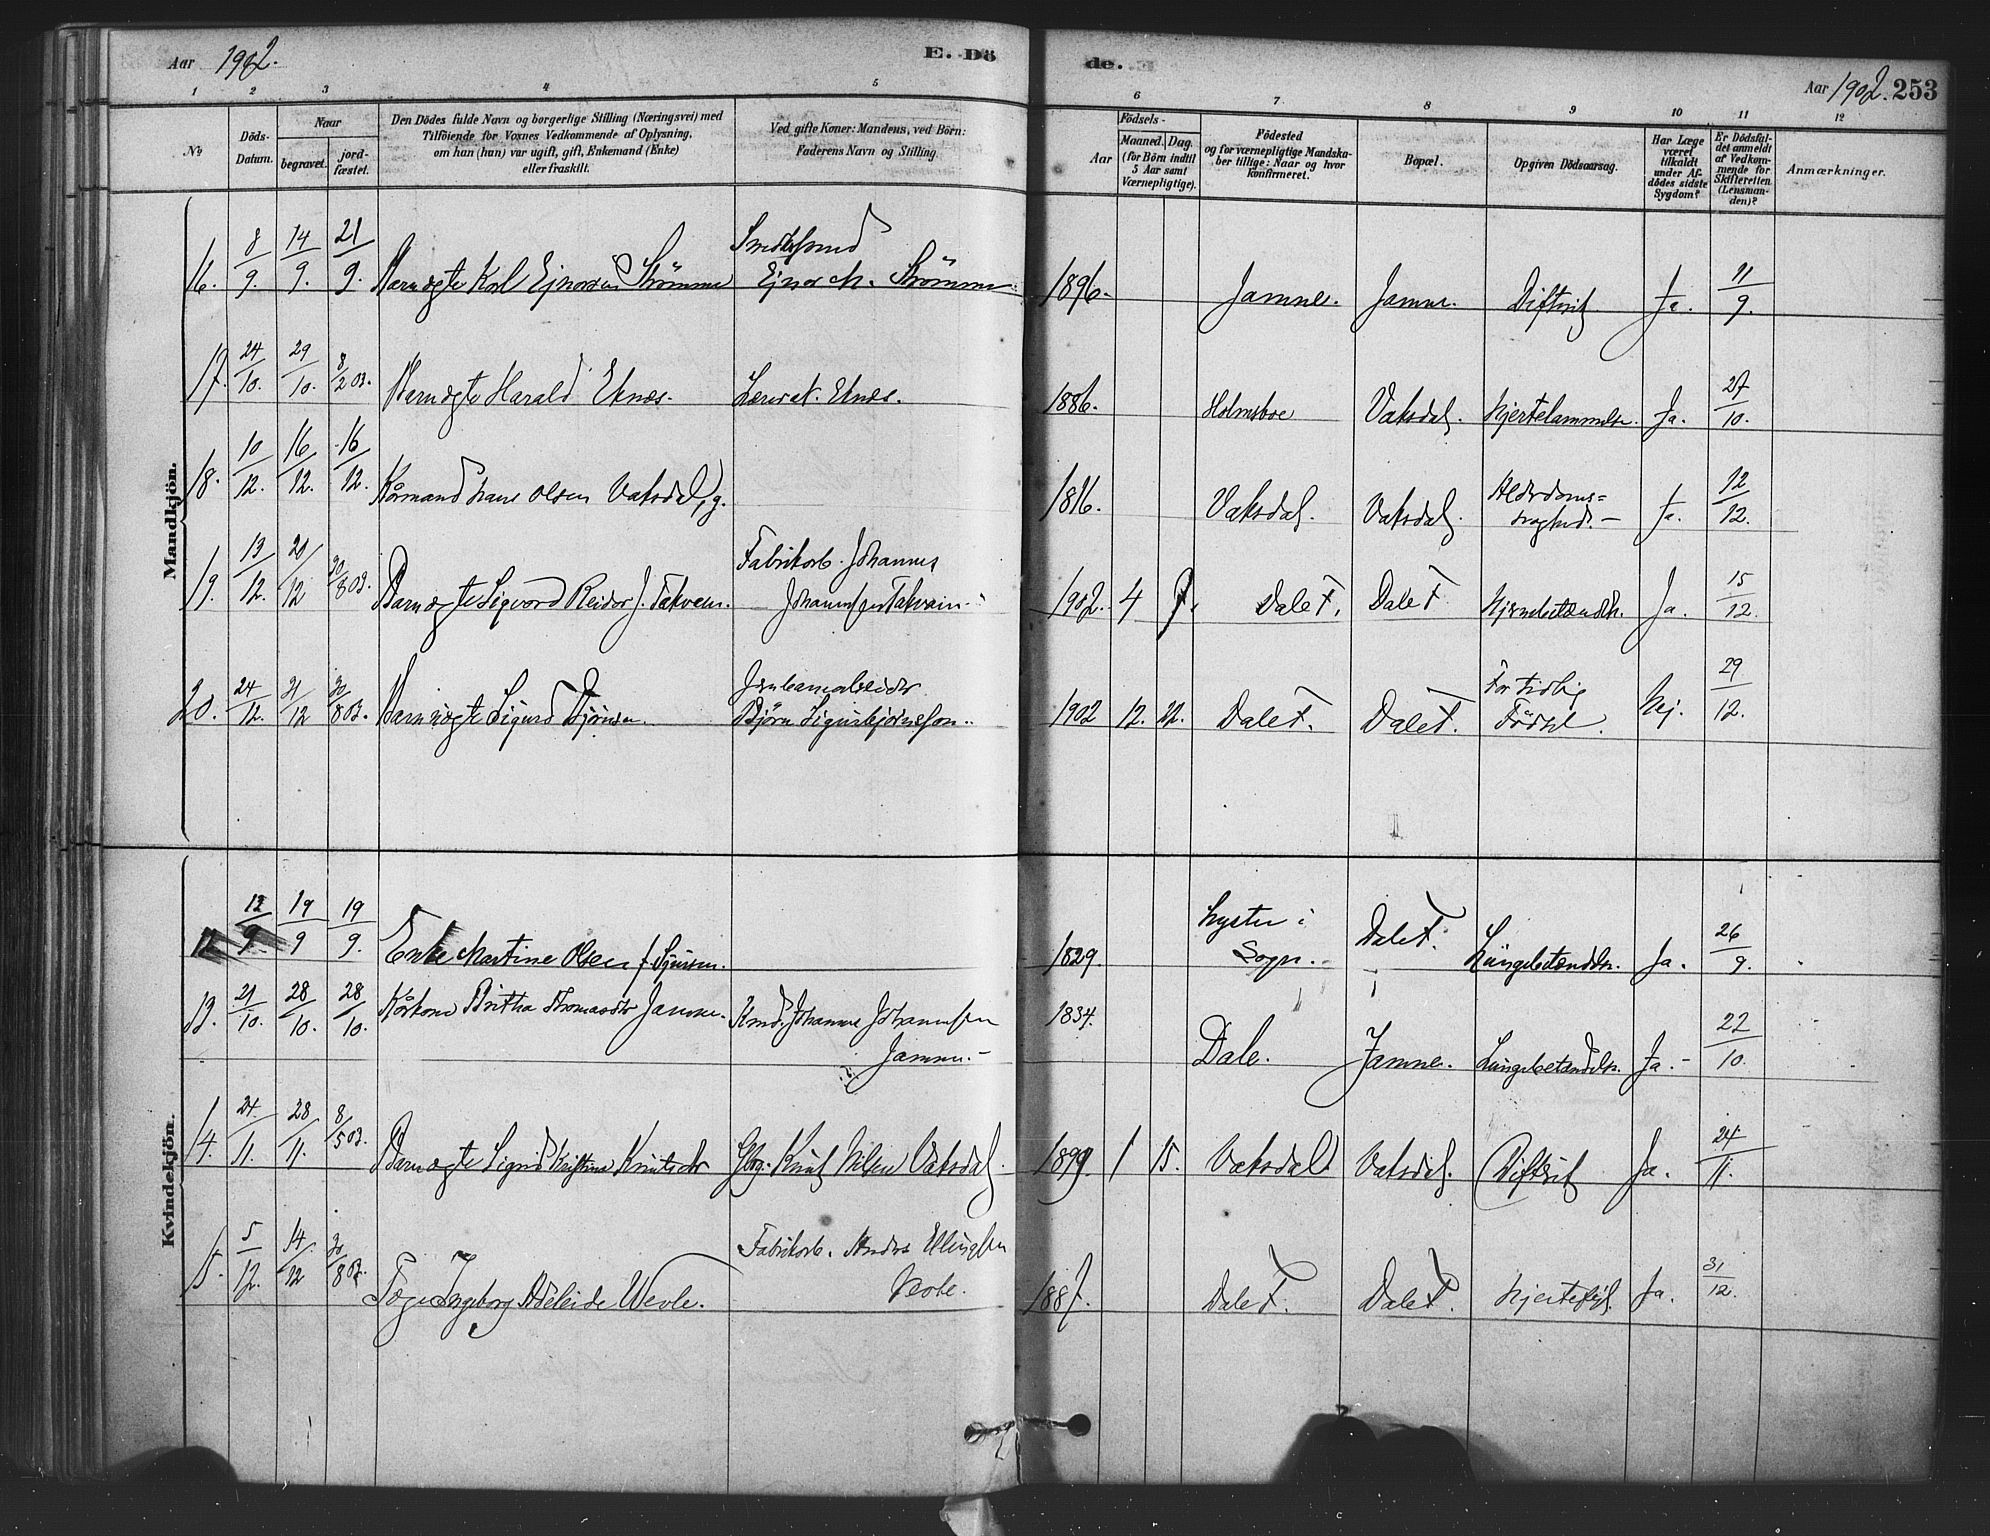 Aar 1902. E. Dö
de. Aar 1902. 253
1 2 3 4 5
6 7 8 9 10 11 12
No
Döds-Datum.
Naar
begravet.
jord-fæstet.
Den Dödes fulde Navn og borgerlige Stilling (Næringsvei) med
Tilföiende for Voxnes Vedkommende af Oplysning,
om han (hun) var ugift, gift, Enkemand (Enke)
eller fraskilt.
Ved gifte Koner: Mandens, ved Börn:
Faderens Navn og Stilling.
Födsels-
Aar
Maaned. Dag.
(for Börn indtil
5 Aar samt
Værnepligtige).
Födested
og for værnepligtige Mandska-
ber tillige: Naar og hvor
konfirmeret.
Bopæl.
Opgiven Dödsaarsag.
Har Læge
været
tilkaldt
under Af-
dödes sidste
Sygdom?
Er Dödsfal-
det anmeldt
af Vedkom-
mende for
Skifteretten
(Lensman-
den)?
Anmærkninger.
Mandkjön.
16. 8/9. 14/9. 21/9. Barn ægte Karl Ejnarsen Strömme Ejnar M. Strömme 1896. Jamne. Jamne. Diftrit Ja. 11/9.
17. 24/10. 29/10. 8/2 03. Barn ægte Harald Eknes. Lærer Eknes. 1886. Holmsboe Vaksdal. Hjertelammelse. Ja. 27/10.
18. 10/12. 16/12. 16/12. Kårmand Hans Olsen Vaksdal, g. 1816. Vaksdal. Vaksdal. Alderdoms=
svaghed. Ja. 12/12.
19. 13/12. 20/12 30/8 03. Barn ægte Sigvard Reidar J. Takvam. Fabrikarb. Johannes
Johannessen Takvam 1902. 4 7. Dale F. Dale F. Hjernebetændelse. Ja. 15/12.
20. 24/12. 31/12 30/8 03. Barn ægte Sigurd Bjørnsen. Jernbanearbeider
Bjørn Sigurbjørnsson. 1902 12. 22. Dale F. Dale F. For tidlig
Fødsel. Nej. 29/12.
Kvindekjön.
12. 12/9. 19/9 19/9. Enke Martine Olsen f. Sjursen. 1829. Lyster i
Sogn. Dale F. Lungebetændelse. Ja. 26/9.
13. 21/10. 28/10. 28/10. Kårkone Britha Thomasdtr Jamne. Kmd. Johannes Johannessen
Jamne. 1834. Dale. Jamne. Lungebetændelse. Ja. 22/10.
14. 24/11. 28/11. 8/5 03. Barn ægte Sigrid Kristine Knutsdtr Gbr. Knut Nilsen Vaksdal. 1899. 1 15. Vaksdal Vaksdal. Diftrit Ja. 24/11.
15. 5/12. 14/12 30/8 03. Pige Ingeborg Adeleide Wevle. Fabrikarb. Anders Ellingsen
Vevle. 1887. Dale F. Dale F. Hjertefeil. Ja. 31/12.